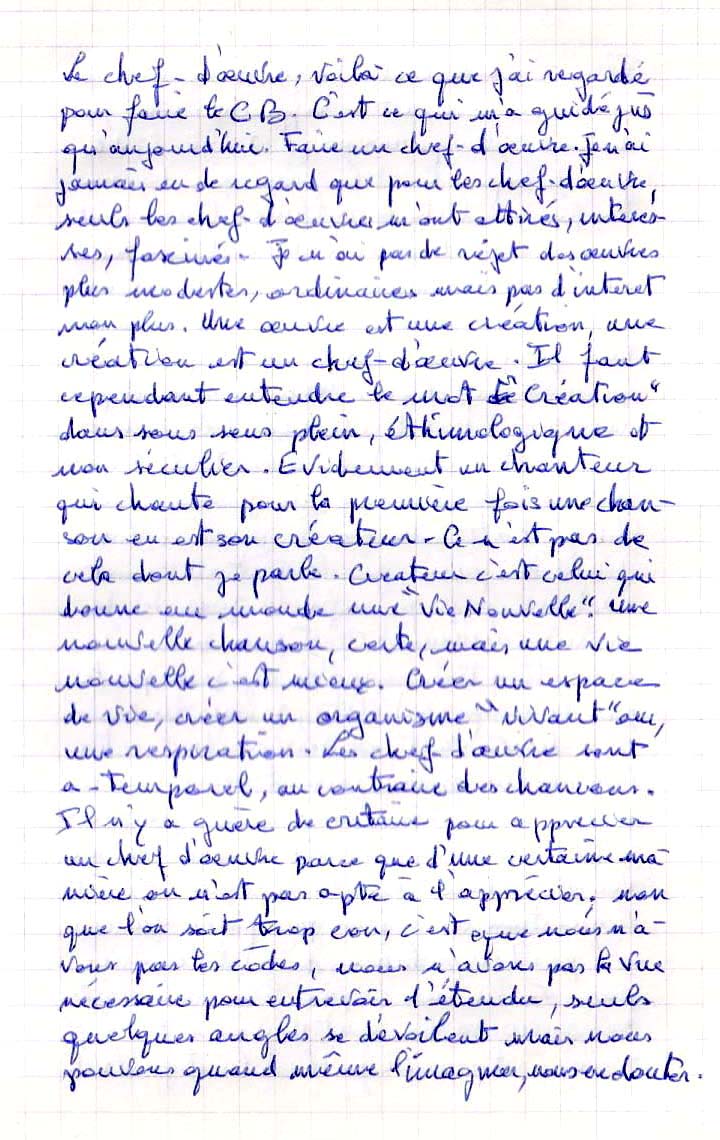 Le chef-d'œuvre, voilà ce que j'ai regardé
pour faire le CB. C'est ce qui m'a guidé jus
qu'aujourd'hui. Faire un chef-d'œuvre. Je n'ai
jamais eu de regard que pour les chef-d'œuvre,
seuls les chef-d'œuvre m'ont attirés, interes-
ses, fascinés. Je n'ai pas de rejet des œuvres
plus modestes, ordinaires mais pas d'interet
non plus. Une œuvre est une création, une
création est un chef-d'œuvre. Il faut
cependant entendre le mot "Création"
dans sons sens plein, éthimologique et
non séculier. Evidement un chanteur
qui chante pour la première fois une chan-
son en est son créateur. Ce n'est pas de
cela dont je parle. Createur c'est celui qui
donne au monde une "Vie Nouvelle". Une
nouvelle chanson, certe, mais une vie
nouvelle c'est mieux. Créer un espace
de vie, créer un organisme "vivant" oui,
une respiration. Les chef d'œuvre sont
a-temporel, au contraire des chansons.
Il n'y a guère de critaire pour apprecier
un chef d'œuvre parce que d'une certaine ma
nière on n'est pas apte à l'apprécier, non
que l'on soit trop con, c'est que nous n'a-
vons pas les codes, nous n'avons pas la vue
nécessaire pour entrevoir l'étendu, seuls
quelques angles se dévoilent mais nous
pouvons quand même l'imaginer, nous en douter.